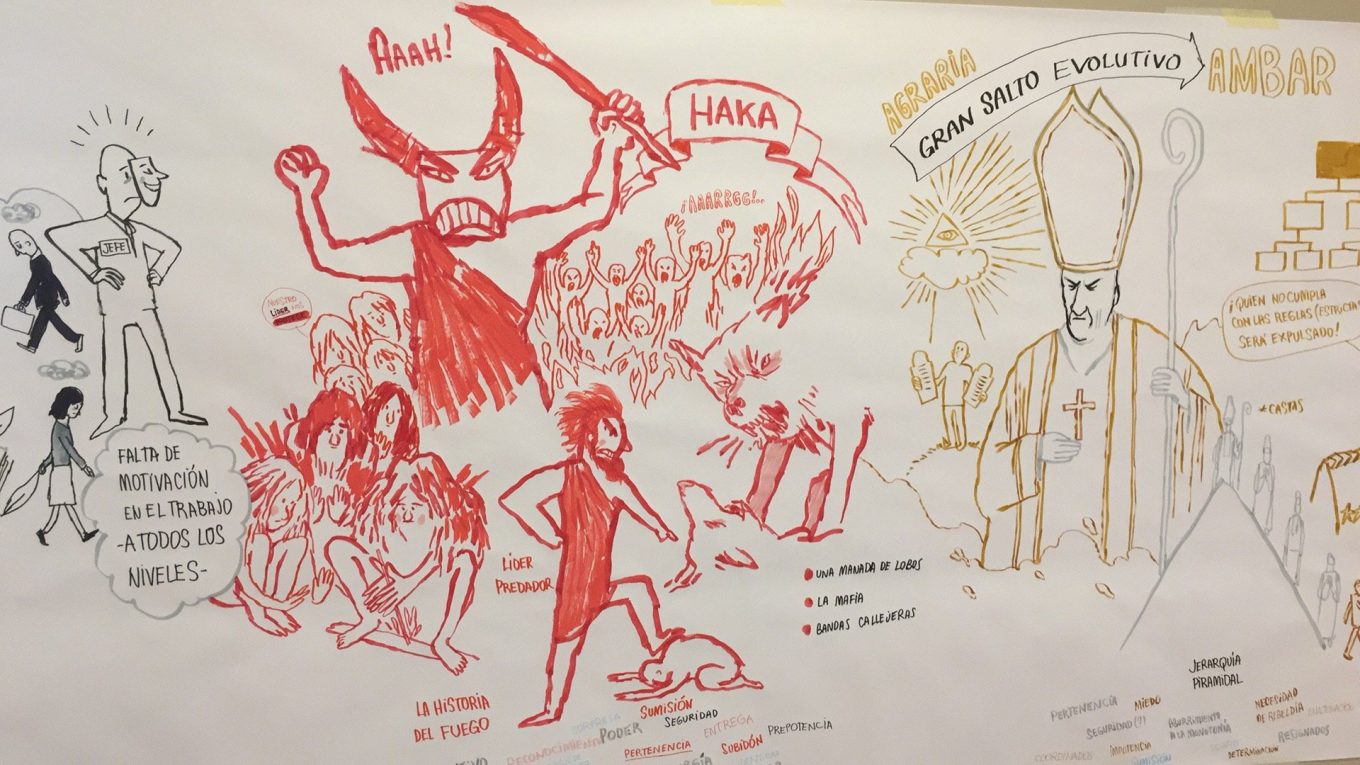 JEFE
FALTA DE
MOTIVACIÓN
EN EL TRABAJO
-A TODOS LOS
NIVELES-
AAAH!
HAKA
¡AAARRGG!..
NUESTRO
LÍDER NOS
LÍDER
PREDADOR
UNA MANADA DE LOBOS
LA MAFIA
BANDAS CALLEJERAS
LA HISTORIA
DEL FUEGO
SORPRESA
SUMISIÓN
PODER
SEGURIDAD
RECONOCIMIENTO
ENTREGA
PREPOTENCIA
PERTENENCIA
SUBIDÓN
AGRARIA
GRAN SALTO EVOLUTIVO
AMBAR
¡QUIEN NO CUMPLA
CON LAS REGLAS (ESTRUCTA
SERÁ EXPULSADO!
*CASTAS
JERARQUÍA
PIRAMIDAL
PERTENENCIA
MIEDO
SEGURIDAD (?)
ABURRIMIENTO
A LA MONOTONÍA
NECESIDAD
DE REBELDÍA
RESIGNADOS
COORDINADOS
IMPOTENCIA
SUMISIÓN
DETERMINACION